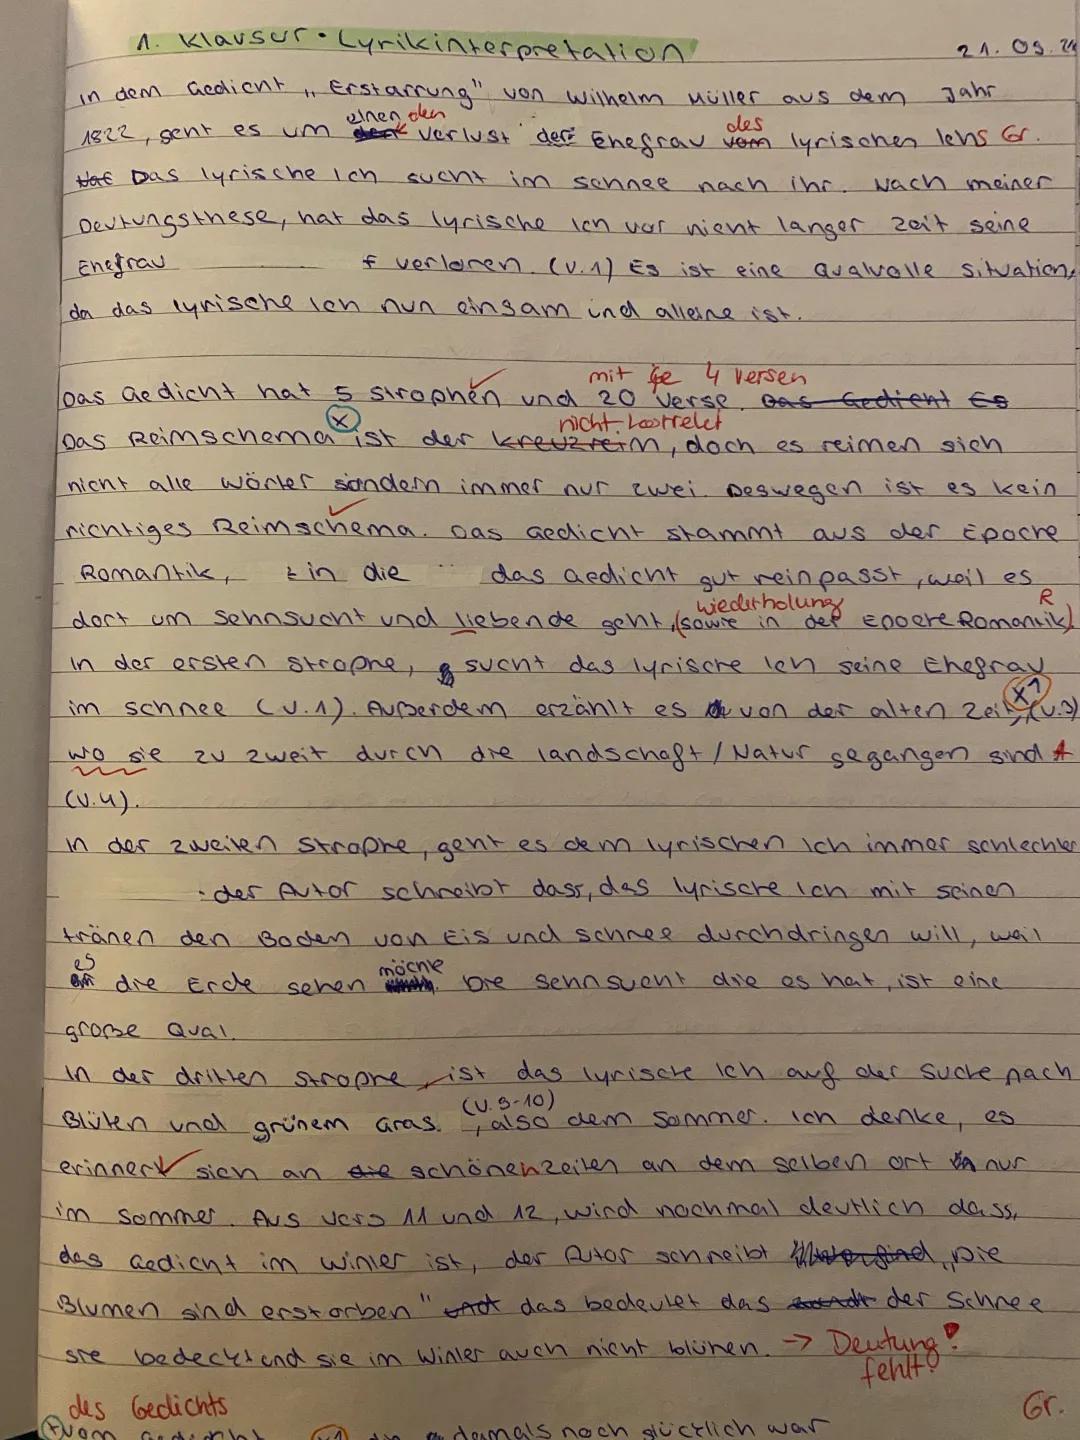 1. Klausur • Lyrikinterpretation
21. 09.
In dem Gedicht „Erstarrung" von Wilhelm Müller aus dem Jahr
einen den des
1822, geht es um Verlust der Ehefrau vom lyrischen Ichs Gr.
Das lyrische Ich sucht im schnee nach ihr. Nach meiner
Deutungsthese, hat das lyrische Ich vor nicht langer Zeit seine
Ehefrau verloren. (V.1) Es ist eine Qualvolle Situation,
da das lyrische Ich nun einsam und alleine ist.
mit je 4 Versen
Das Gedicht hat 5 Strophen und 20 Verse. Das Gedicht Es
nicht korrekt
Das Reimschema (x) ist der Kreuzreim, doch es reimen sich
nicht alle Wörter sondern immer nur zwei. Deswegen ist es kein
richtiges Reimschema. Das Gedicht stammt aus der Epoche
Romantik, in die das Gedicht gut reinpasst, weil es
wiederholung R
dort um Sehnsucht und liebende geht, (sowie in der Epoche Romantik)
In der ersten Strophe, sucht das lyrische Ich seine Ehefrau
im schnee (V.1). Außerdem erzählt es von der alten Zeit, x1 (V.3)
wo sie zu zweit durch die landschaft / Natur gegangen sind A
(V.4).
In der zweiten Strophe, geht es dem lyrischen Ich immer schlechter
der Autor schreibt dass, das lyrische Ich mit seinen
tränen den Boden von Eis und Schnee durchdringen will, weil
es möchte
die Erde sehen . Die Sehnsucht die es hat, ist eine
große Qual.
In der dritten Strophe ist das lyrische Ich auf der Suche nach
(V. 9-10)
Blüten und grünem Gras. , also dem Sommer. Ich denke, es
erinnert sich an die schönen Zeiten an dem selben ort nur
im Sommer. Aus Vers 11 und 12, wird nochmal deutlich dass,
das Gedicht im Winter ist, der Autor schreibt „Die
Blumen sind erstorben" das bedeutet das der Schnee
sie bedeckt und sie im Winter auch nicht blühen. → Deutung fehlt!
des Gedichts
Gr.
vom Gedicht x1 die damals noch glücklich war